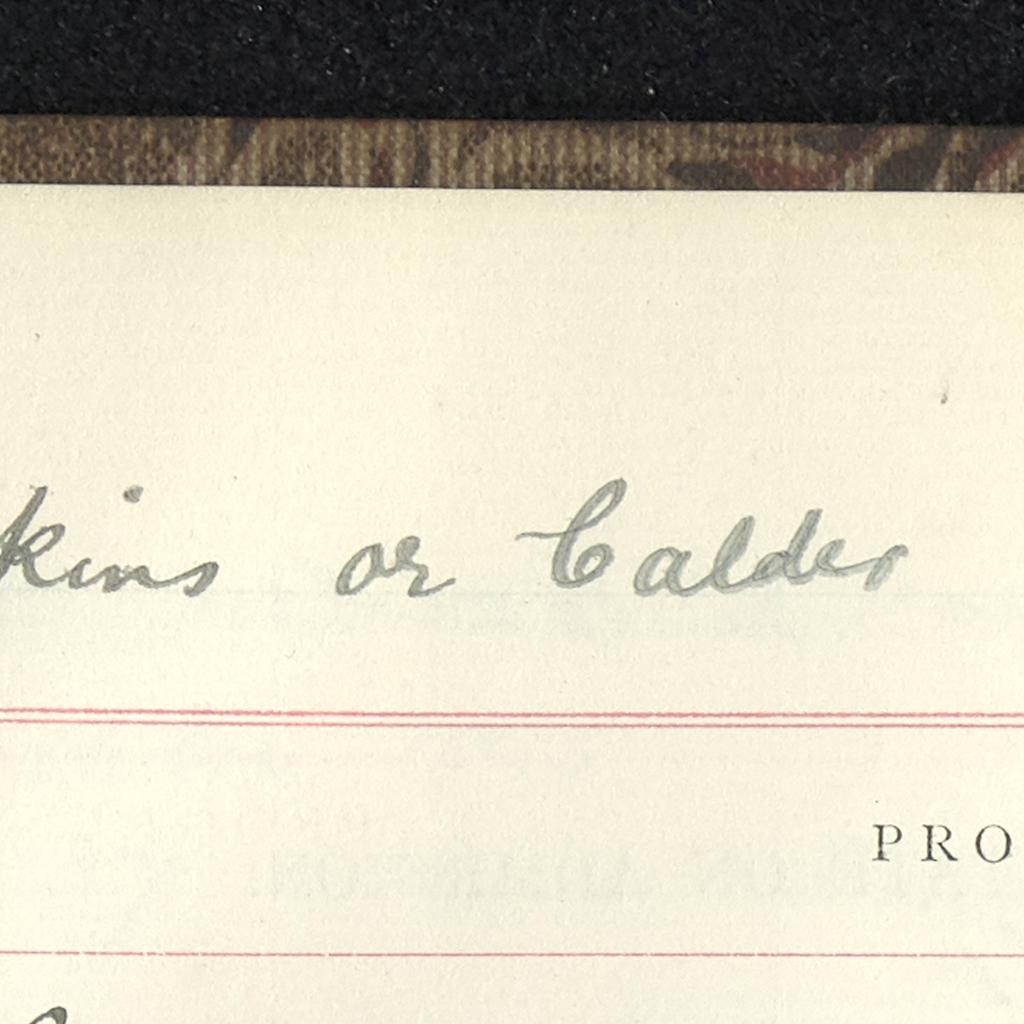 kins or Calder
PRO